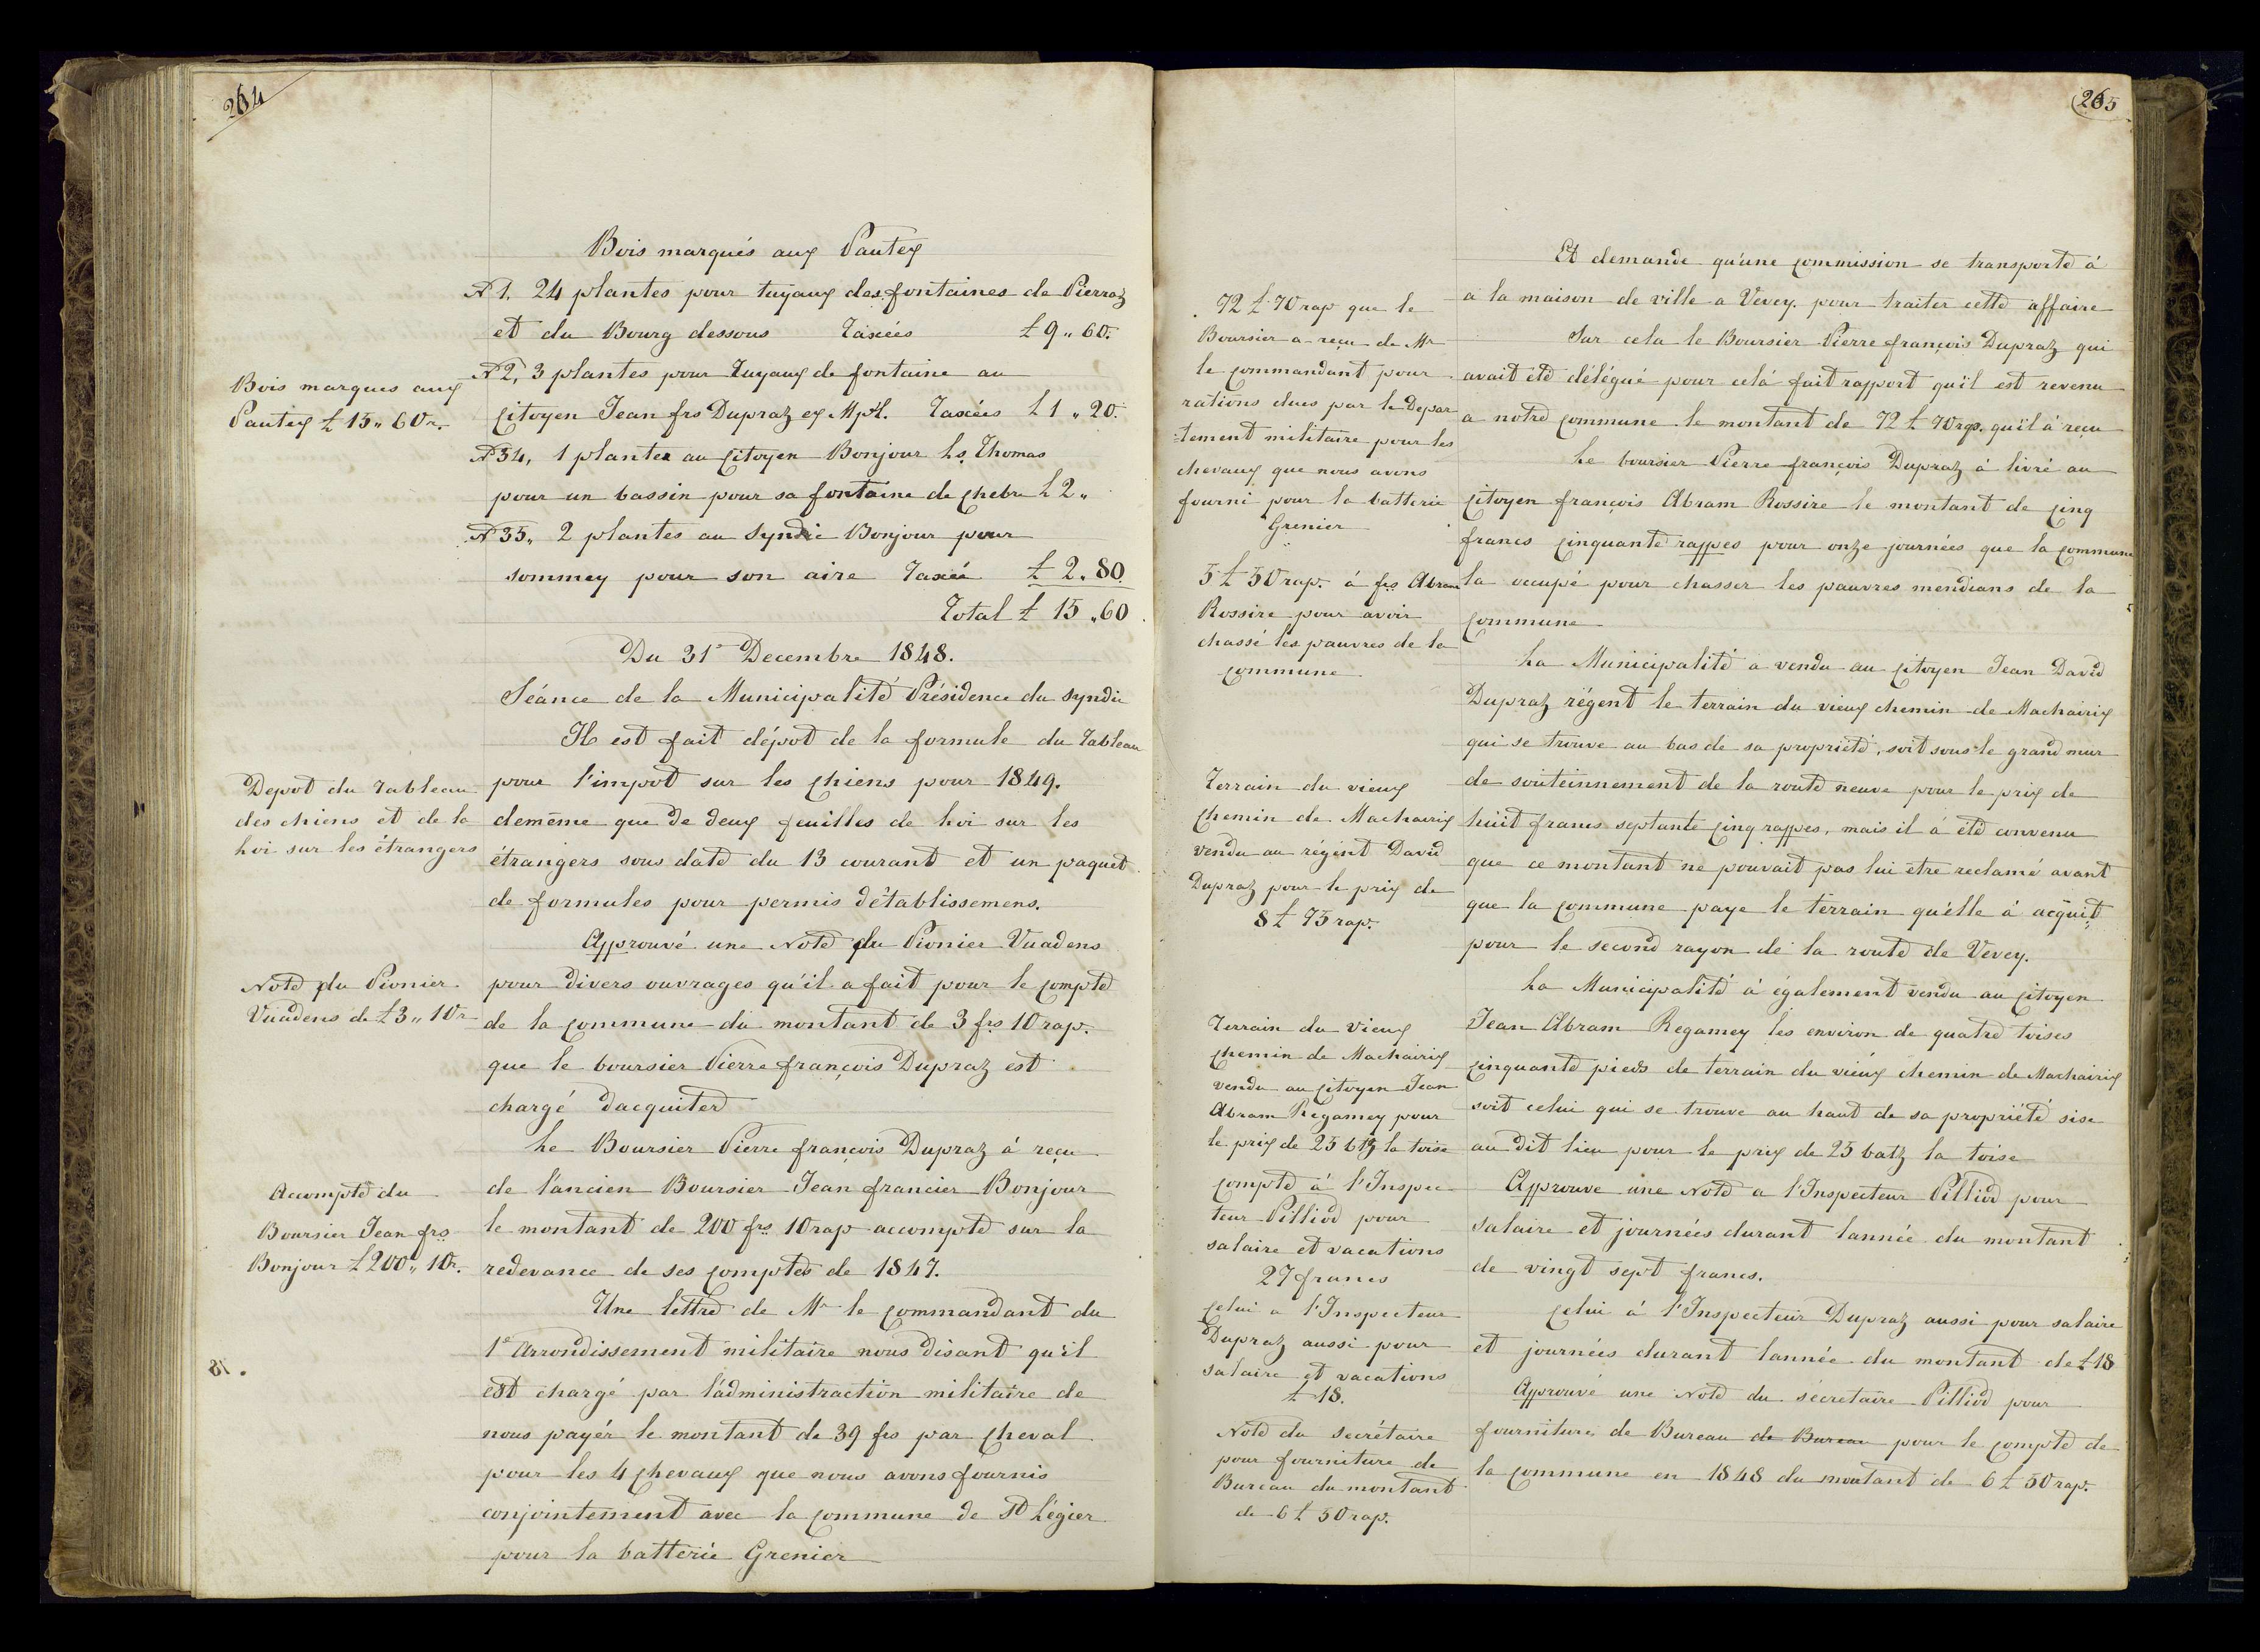 264
Bois marqués aux Pautex
N 1. 24 plantes pour tuyaux des fontaines de Pierraz
et du Bourg dessous Taxées £ 9 " 60.
N 2, 3 plantes pour Tuyaux de fontaine au
Citoyen Jean frs Dupraz ex Mpl. Taxées L 1 " 20.
N 34, 1 plante au Citoyen Bonjour Ls. Thomas
pour un bassin pour sa fontaine de Chebre L 2 "
N 35, 2 plantes au Syndic Bonjour pour
sommey pour son aire Taxée £ 2 " 80.
Total £ 15 " 60
Bois marques aux
Pautex £ 15 " 60 r.
Du 31e Decembre 1848.
Séance de la Municipalité Présidence du Syndic
Il est fait dépot de la formule du Tableau
pour l'impot sur les Chiens pour 1849.
demême que de deux feuilles de Loi sur les
étrangers sous date du 13 courant et un paquet
de formules pour permis d'établissemens.
Depot du Tableau
des chiens et de la
Loi sur les étrangers
Approuvé une Note du Pionier Vuadens
pour divers ouvrages qu'il a fait pour le Compte
de la Commune du montant de 3 frs 10 rap.
que le boursier Pierre françois Dupraz est
chargé dacquiter
Note du Pionier
Vuadens de £3 " 10 r
Le Boursier Pierre françois Dupraz à reçu
de l'ancien Boursier Jean francier Bonjour
le montant de 200 frs 10 rap accompte sur la
redevance de ses Comptes de 1847.
Acompte du
Boursier Jean frs
Bonjour £ 200 " 10 r.
Une lettre de Mr le Commandant du
1e Arrondissement militaire nous disant qu'il
est chargé par l'administraction militaire de
nous payér le montant de 39 frs par Cheval
pour les 4 Chevaux que nous avons fournis
conjointement avec la Commune de St Légier
pour la batterie Grenier
265
Et demande qu'une Commission se transporte à
a la maison de ville a Vevey. pour traiter cette affaire
Sur cela le Boursier Pierre françois Dupraz qui
avait été délégué pour celà fait rapport qu'il est revenu
a notre Commune le montant de 72 £ 70 rap. qu'il à reçu
72 £ 70 rap que le
Boursier a reçu de Mr
le Commandant pour
rations dues par le Depar
=tement militaire pour les
chevaux que nous avons
fourni pour la batterie
Grenier
Le boursier Pierre françois Dupraz à livré au
Citoyen françois Abram Rossire le montant de Cinq
francs Cinquante rappes pour onze journées que la Commune
la occupé pour chasser les pauvres mendians de la
Commune
5 £ 50 rap. à frs Abram
Rossire pour avoir
chassé les pauvres de la
Commune
La Municipalité a vendu au Citoyen Jean David
Dupraz régent le terrain du vieux chemin de Machairix
qui se trouve au bas de sa propriété, soit sous le grand mur
de souteinnement de la route neuve pour le prix de
huit francs septante Cinq rappes, mais il à été convenu
que ce montant ne pouvait pas lui être reclamé avant
que la Commune paye le terrain qu'elle à acquit
pour le second rayon de la route de Vevey.
Terrain du vieux
Chemin de Machairix
vendu au régent David
Dupraz pour le prix de
8 £ 75 rap.
La Municipalité à également vendu au Citoyen
Jean Abram Regamey les environ de quatre toises
Cinquante pieds de terrain du vieux chemin de Machairix
soit celui qui se trouve au haut de sa propriété sise
au dit lieu pour le prix de 25 batz la toise
Terrain du vieux
Chemin de Machairix
vendu au Citoyen Jean
Abram Regamey pour
le prix de 25 btz la toise
Approuve une Note a l'Inspecteur Pilliod pour
salaire et journées durant lannée du montant
de vingt sept francs.
Compte à l'Inspec
teur Pilliod pour
salaire et vacations
27 francs
Celui à l'Inspecteur Dupraz aussi pour salaire
et journées durant lannée du montant de £ 18
Celui a l'Inspecteur
Dupraz aussi pour
salaire et vacations
£ 18.
Approuvé une Note du sécretaire Pilliod pour
fourniture de Bureau de Bureau pour le Compte de
la Commune en 1848 du montant de 6 £ 50 rap.
Note du secrétaire
pour fourniture de
Bureau du montant
de 6 £ 50 rap.